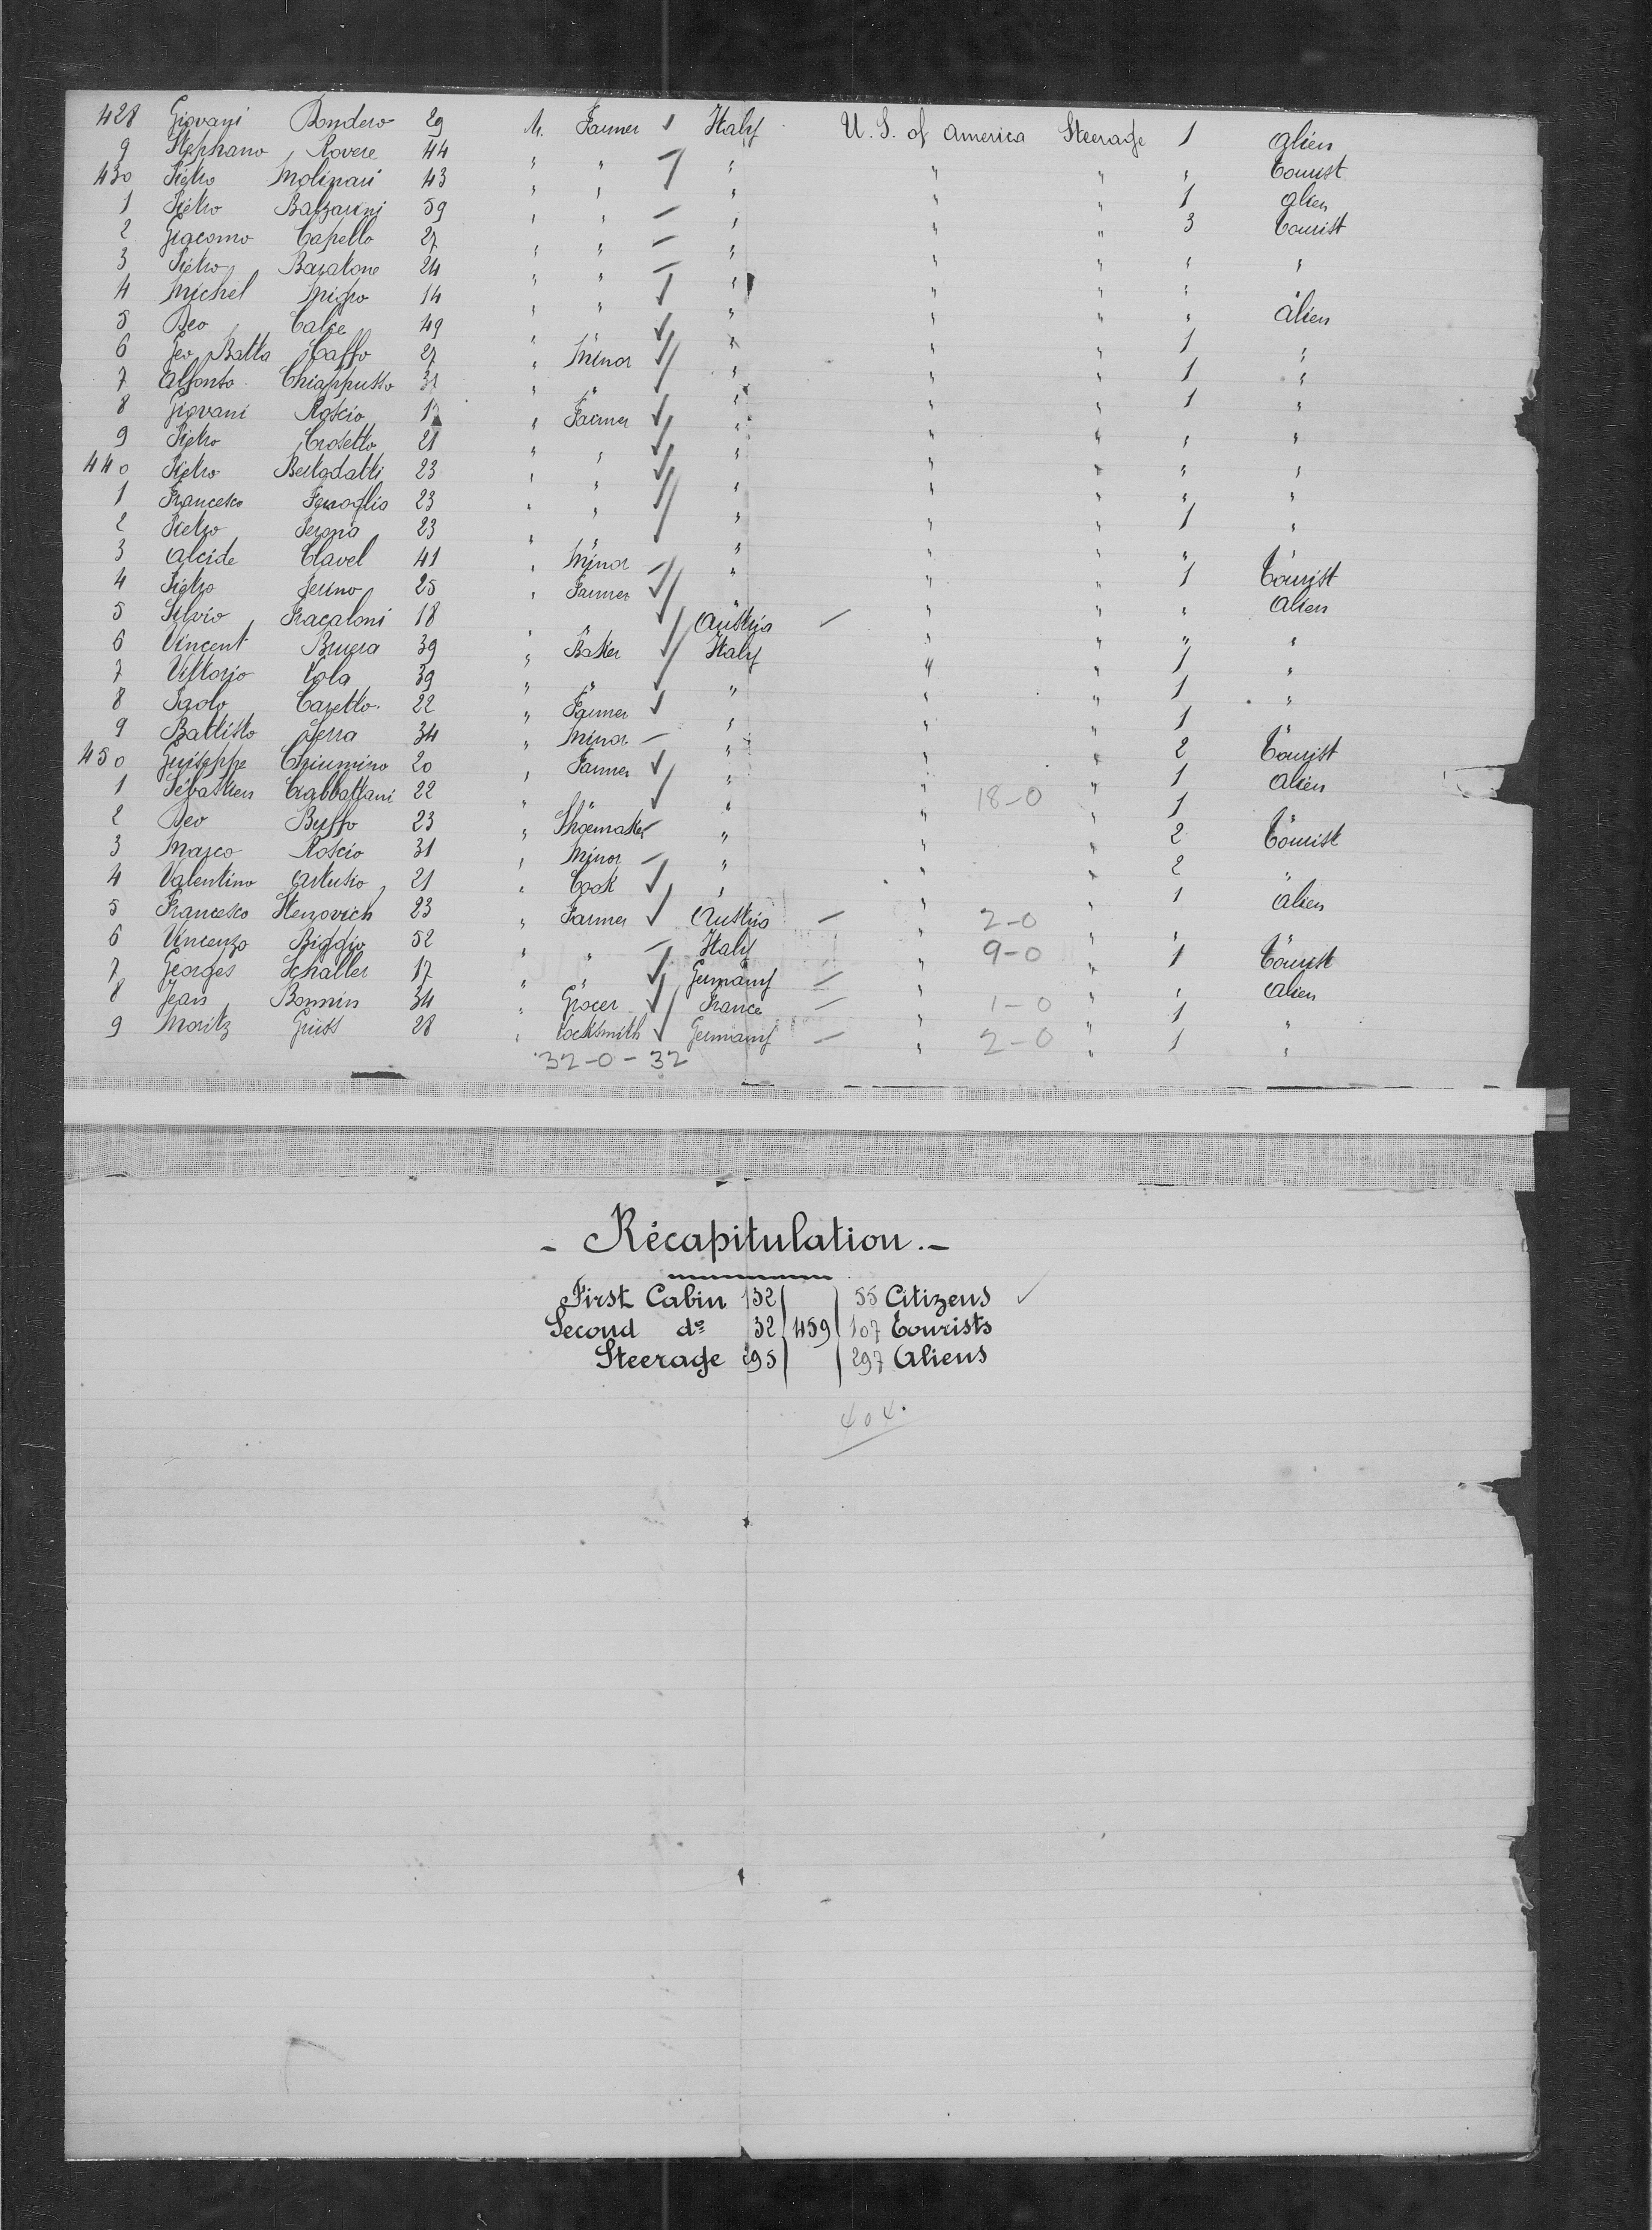 428 Giovani Bondero 29 M. Farmer Italy U. S. of America Steerage 1 Alien
9 Stephano Rovere 44 " " " " " " Tourist
430 Pietro Molinari 43 " " " " " 1 Alien
1 Pietro Balzarini 59 " " " " " 3 Tourist
2 Giacomo Capello 27 " " " " " " "
3 Pietro 24 " " " " " "
4 Michel 14 " " " " " " Alien
5 Beo 49 " " " " 1 "
6 Geo Batta 27 " Minor " " " 1 "
7 Alfonso Chiappusso 31 " " " " " 1 "
8 Giovani Roscio " Farmer " " " " "
9 Pietro Crosetto 21 " " " " " " "
440 Pietro 23 " " " " " " "
1 Francesco 23 " " " " " 1 "
2 Pietro 23 " " " " " "
3 Alcide Clavel 41 " Minor " " " 1 Tourist
4 Pietro 25 " Farmer " " " " Alien
5 Silvio Fracaloni 18 " " Austria " " " "
6 Vincent Bruera 39 " Baker Italy " " 1 "
7 Vittorio Cola 39 " " " " " 1 "
8 Paolo Caretto 22 " Farmer " " " 1 "
9 Battisto Serra 34 " Minor " " " 2 Tourist
450 Guiseppe 20 " Farmer " " " 1 Alien
1 Sébastien 22 " " " " 18-0 " 1 "
2 Beo Buffo 23 " Shoemaker " " " 2 Tourist
3 Marco Roscio 31 " Minor " " " 2 "
4 Valentino Artusio 21 " Cook " " " 1 Alien
5 Francesco 23 " Farmer Austria " 2-0 " " "
6 Vincenzo Biggio 52 " " Italy " 9-0 " 1 Tourist
7 Georges Schaller 17 " " Germany " " " Alien
8 Jean Bonnin 34 " Grocer France " 1-0 " 1 "
9 Moritz 28 " Locksmith Germany " 2-0 " 1 "
32-0-32
- Récapitulation. -
First Cabin 132 55 Citizens
Second do 32 459 107 Tourists
Steerage 295 297 Aliens
404.